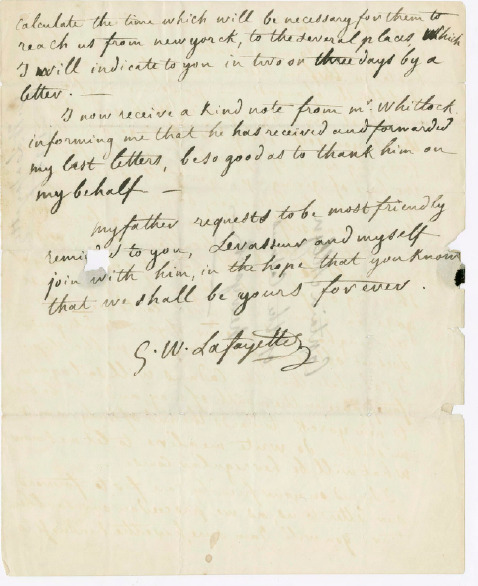 calculate the time which will be necessary for them to
reach us from new yorck, to the several places, which
I will indicate to you in two or three days by a
letter. —
I now receive a kind note from mr. Whitlock
informing me that he has received and forwarded
my last letters, be so good as to thank him on
my behalf —
my father requests to be most friendly
remin to you, Levasseur and myself
join with him, in the hope that you know
that we shall be yours for ever.
G. W. Lafayette